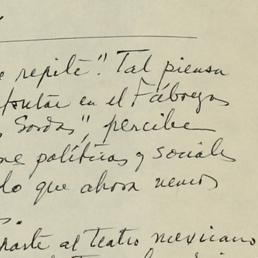 repite". Tal piensa
en el Fábregas
Gordas", percibe
políticas y sociales
lo que ahora vemos
al teatro mexicano